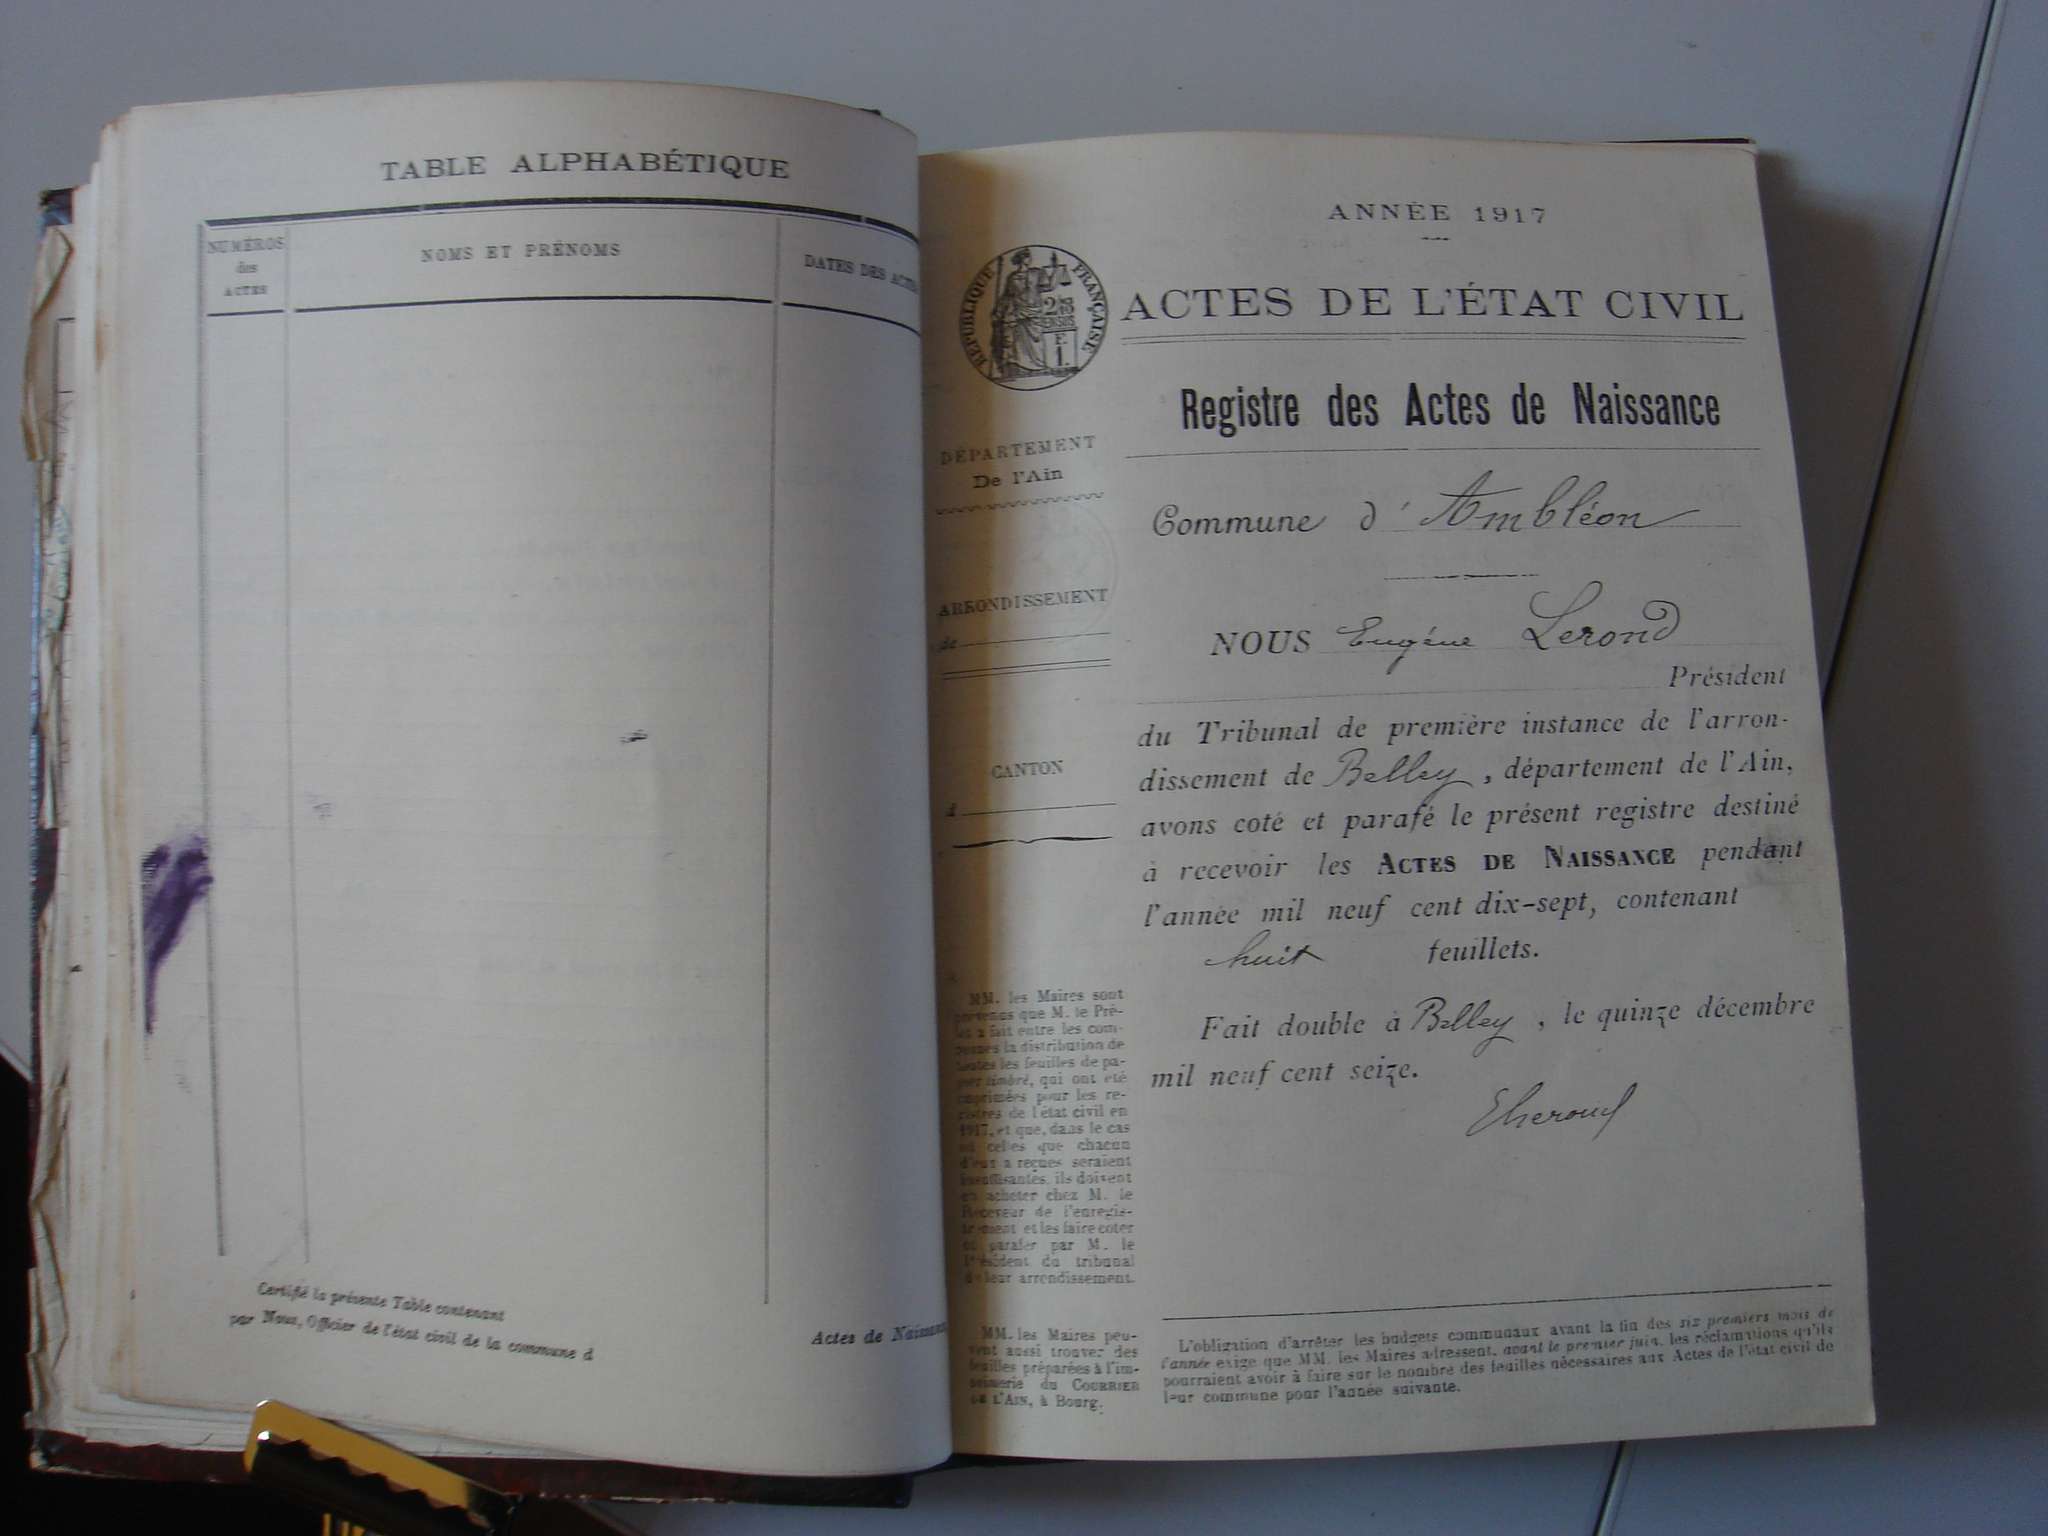 TABLE ALPHABÉTIQUE
NUMÉROS
des
ACTES
NOMS ET PRÉNOMS
DATES DES ACTES
Certifié la présente Table contenant
par Nous, Officier de l'état civil de la commune d
Actes de Naissan
ANNÉE 1917
RÉPUBLIQUE FRANÇAISE
ACTES DE L'ÉTAT CIVIL
Registre des Actes de Naissance
DÉPARTEMENT
De l'Ain
Commune d'Ambléon
ARRONDISSEMENT
de
NOUS Eugène Lerond
Président
du Tribunal de première instance de l'arron-
dissement de Belley, département de l'Ain,
CANTON
d
avons coté et parafé le présent registre destiné
à recevoir les ACTES DE NAISSANCE pendant
l'année mil neuf cent dix-sept, contenant
huit feuillets.
Fait double à Belley, le quinze décembre
mil neuf cent seize.
MM. les Maires sont
prévenus que M. le Pré-
fet a fait entre les com-
munes la distribution de
toutes les feuilles de pa-
pier timbré, qui ont été
imprimées pour les re-
gistres de l'état civil en
1917, et que, dans le cas
où celles que chacun
d'eux a reçues seraient
insuffisantes, ils doivent
en acheter chez M. le
Receveur de l'enregis-
trement et les faire coter
et parafer par M. le
Président du tribunal
de leur arrondissement.
MM. les Maires peu-
vent aussi trouver des
feuilles préparées à l'im-
primerie du COURRIER
DE L'AIN, à Bourg.
L'obligation d'arrêter les budgets communaux avant la fin des six premiers mois de
l'année exige que MM. les Maires adressent, avant le premier juin, les réclamations qu'ils
pourraient avoir à faire sur le nombre des feuilles nécessaires aux Actes de l'état civil de
leur commune pour l'année suivante.